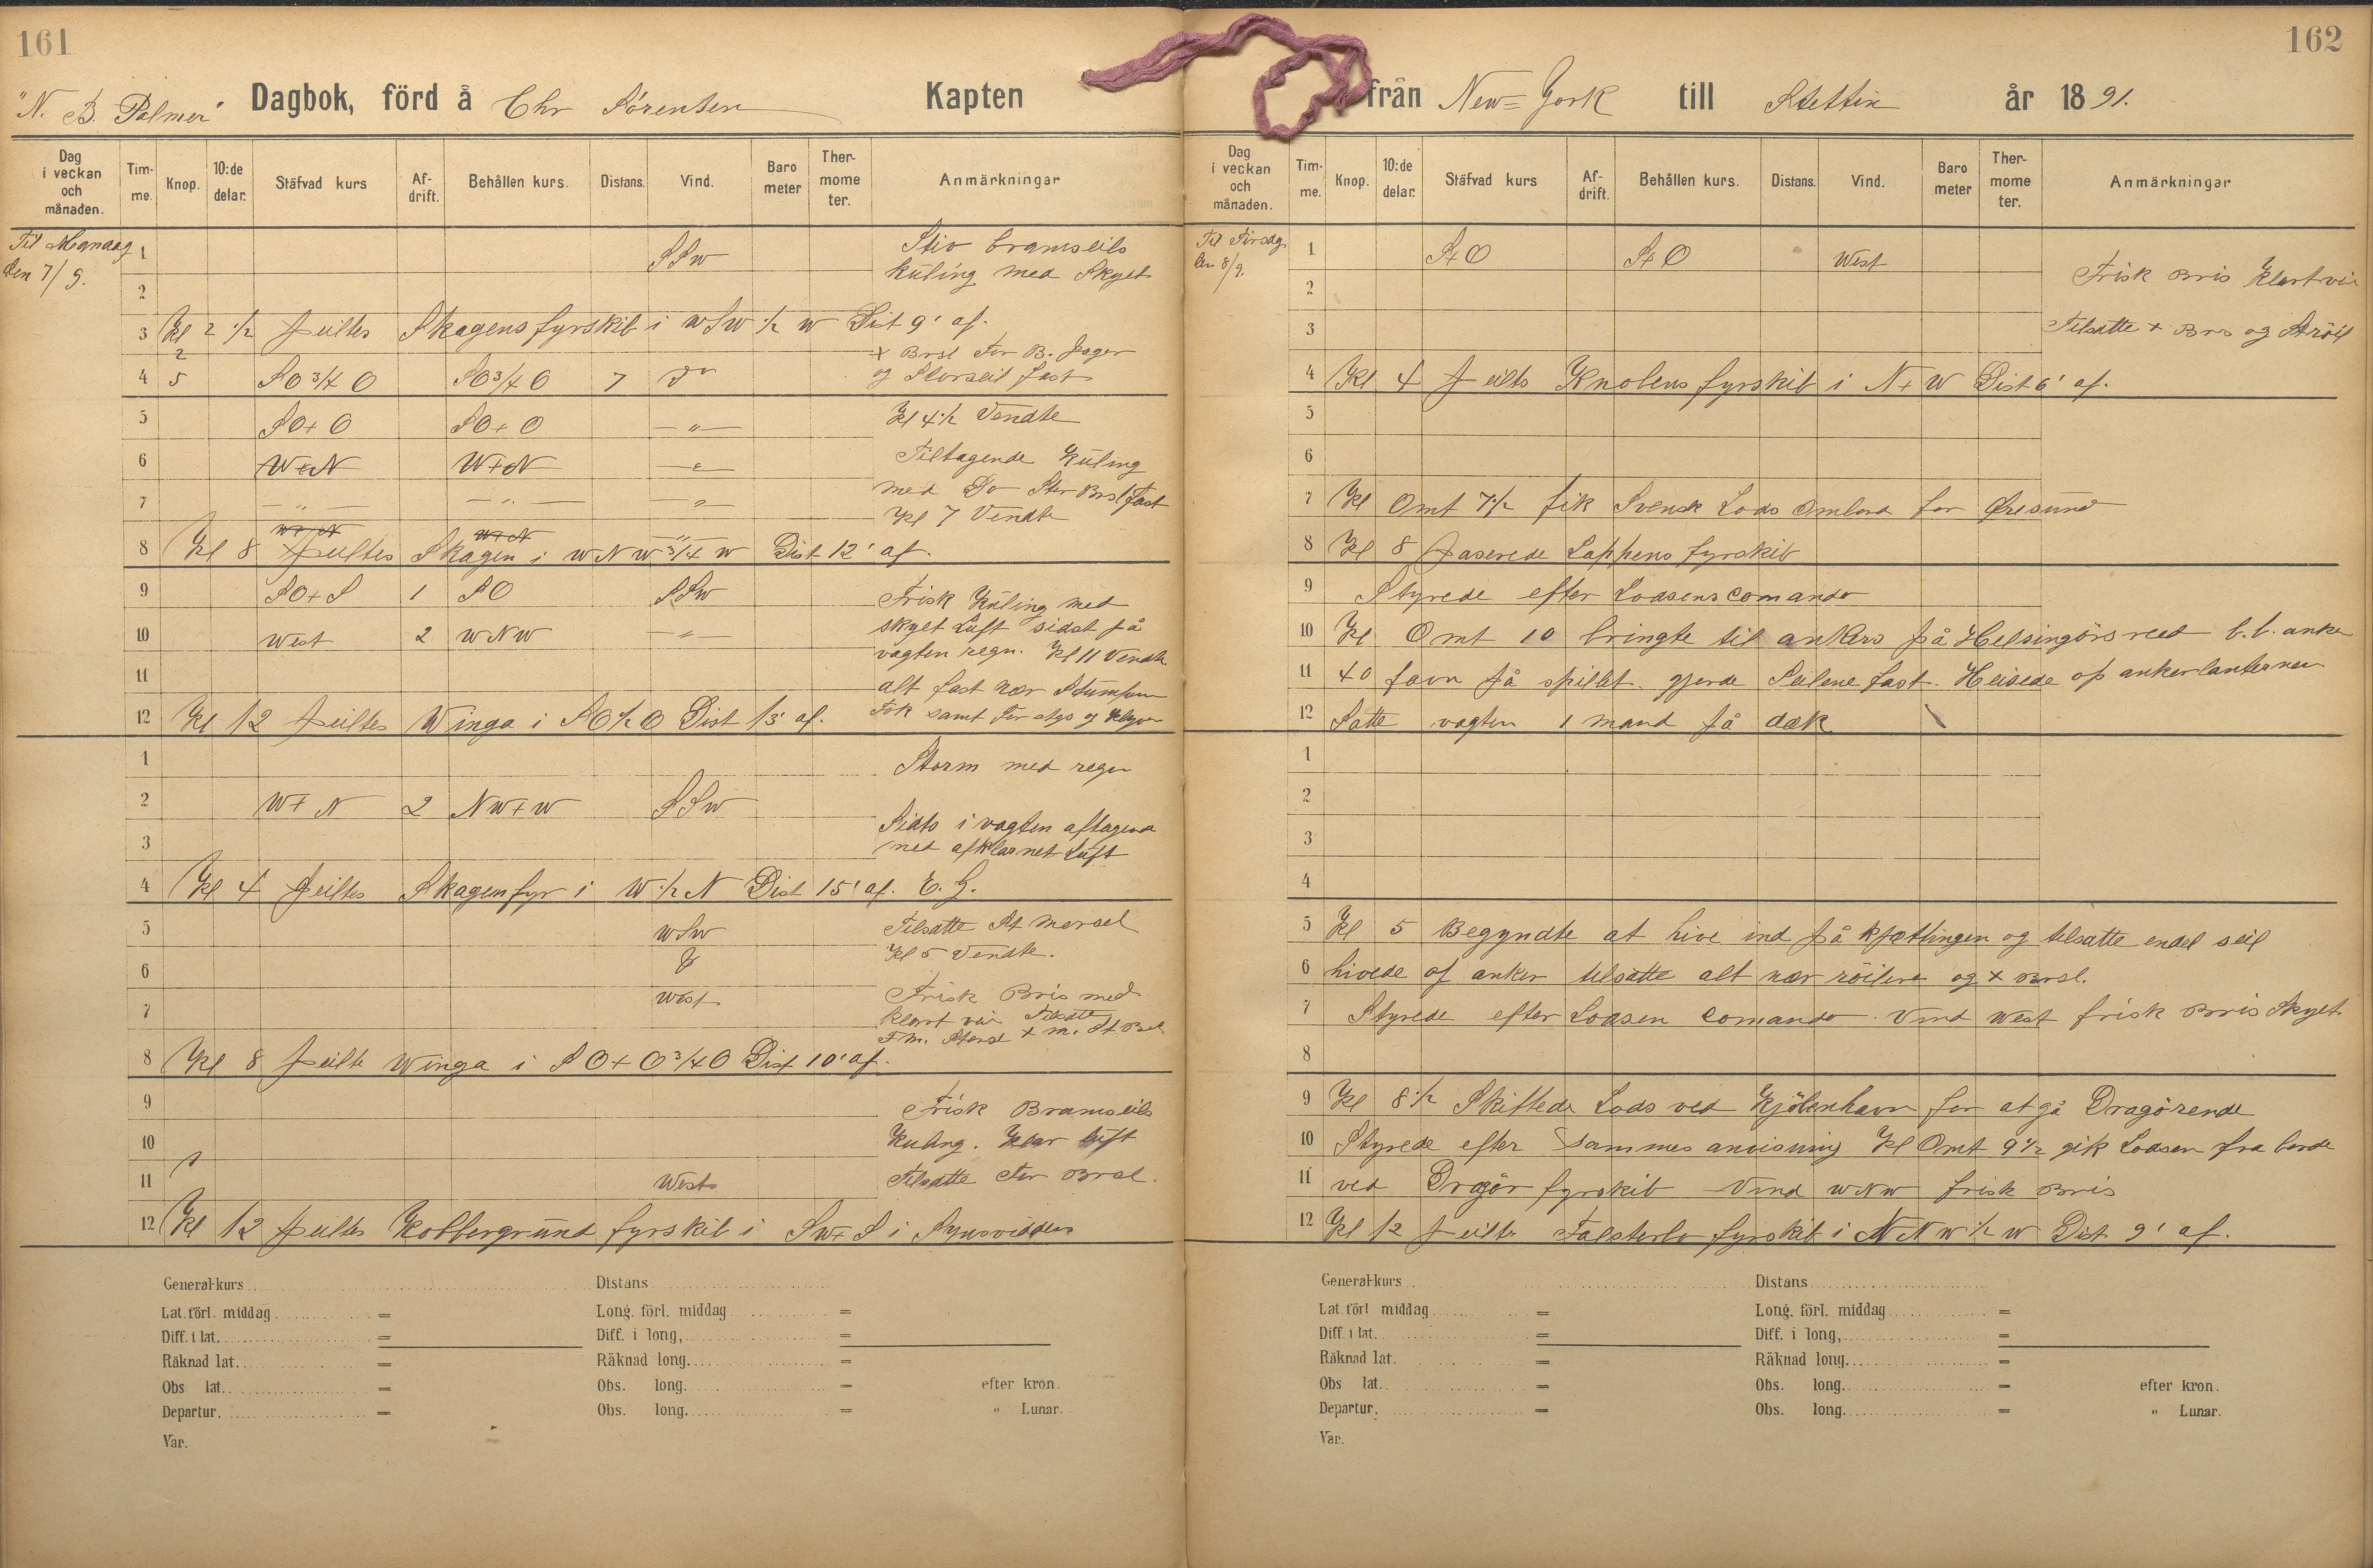 161
"N. B. Palmer" Dagbok, förd å Chr Sörensen Kapten
Dag i veckan och månaden. Tim-me. Knop. 10:de delar. Stäfvad kurs Af-drift. Behållen kurs. Distans. Vind. Baro meter Ther-mome ter. Anmärkningar
Til Mandag
den 7/9.
1 SSW Stiv bramseils
kuling med Skyet
2
3 Kl 2 1/2 peiltes Skagens fyrskib i WSW 1/2 W Dist 9' af.
2
x Brsl For B. Jager
4 5 SO 3/4 O SO 3/4 O 7 Do og Storseil fast
5 SO+O SO+O —"— Kl 4 1/2 Vendte
6 W+N W+N —"— Tiltagende Kuling
7 —"— —"— —"— med Do Stor Brsl fast
Kl 7 Vendte
W+N W+N —"—
8 Kl 8 peiltes Skagen i WNW 3/4 W Dist 12' af.
9 SO+S 1 SO SSW Frisk Kuling med
10 West 2 WNW —"— skyet Luft sidst på
vagten regn. Kl 11 Vendte
11 alt fast nær
12 Kl 12 peiltes Winga i SO 1/2 O Dist 13' af. Fok samt For stgs og Klyver
1 Storm med regn
2 W+N 2 NW+W SSW
Sidts i vagten aftagende
3 med afklarnet Luft
4 Kl 4 peiltes Skagen fyr i W 1/2 N Dist 15' af. E. G.
5 WSW Tilsatte St mersel
Kl 5 Vendte.
6
7 West Frisk Bris med
klart veir Tilsatte
8 Kl 8 peilte Winga i SO+O 3/4 O Dist 10' af.
9 Frisk Bramseils
10 Kuling. Klar luft
11 West Tilsatte For Brsl.
12 Kl 12 peiltes Kobbergrund fyrskib i SW+S i Synsvidden
General-kurs Distans
Lat. förl. middag = Long. förl. middag =
Diff. i lat. = Diff. i long, =
Räknad lat. = Räknad long. =
Obs lat. = Obs. long. = efter kron.
Departur. = Obs. long. = " Lunar.
Var.
162
från New=York till Stettin år 1891.
Dag i veckan och månaden. Tim-me. Knop. 10:de delar. Stäfvad kurs Af-drift. Behållen kurs. Distans. Vind. Baro meter Ther-mome ter. Anmärkningar
Til Tirsdag
den 8/9.
1 S+O S+O West
Frisk Bris Klart veir
2
3 Tilsatte + Brs ogStröil
4 Kl 4 peilts Knolens fyrskib i N+W Dist 6' af.
5
6
7 Kl Omt 7 1/2 fik Svensk Lods Ombord for Øresund
8 Kl 8 paserede Lappens fyrskib
9 Styrede efter Lodsens comando
10 Kl Omt 10 bringte til ankers på Helsingörs reed b.b. anker
11 40 favn på spillet. gjorde Seilene fast. Heisede op ankerlanternen
12 Satte vagten 1 mand på dæk.
1
2
3
4
5 Kl 5 Begyndte at hive ind på kjættingen og tilsatte endel seil
6 hivede op anker tilsatte alt nær röilerne og x Brsl.
7 Styrede efter Lodsen comando. Vind West frisk Bris Skyet
8
9 Kl 8 1/2 Skiftede Lods ved Kjöbenhavn for at gå Dragörende
10 Styrede efter sammes anvisning Kl Omt 9 1/2 gik Lodsen fra borde
11 ved Dragör fyrskib Vind WNW frisk Bris
12 Kl 12 peilte Falsterbo fyrskib i NNW 1/2 W Dist 9' af.
General-kurs Distans
Lat. förl middag = Long. förl. middag =
Diff. i lat. = Diff. i long, =
Räknad lat. = Räknad long. =
Obs lat. = Obs. long. = efter kron.
Departur. = Obs. long. = " Lunar.
Var.